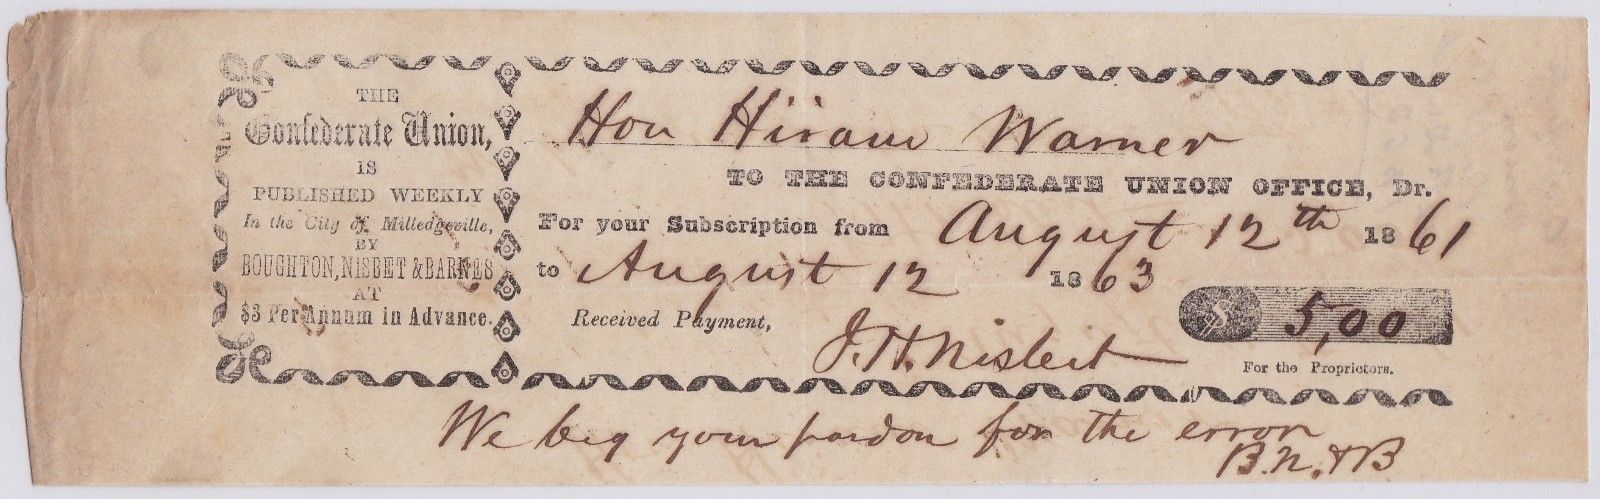 THE
Confederate Union,
IS
PUBLISHED WEEKLY
In the City of Milledgeville,
BY
BOUGHTON, NISBET & BARNES
AT
$3 Per Annum in Advance.
Hon Hiram Warner
TO THE CONFEDERATE UNION OFFICE, Dr.
For your Subscription from August 12th 1861
to August 12 1863
$ 5,00
Received Payment,
J. H. Nisbet
For the Proprietors.
We beg your pardon for the error
B. N. & B